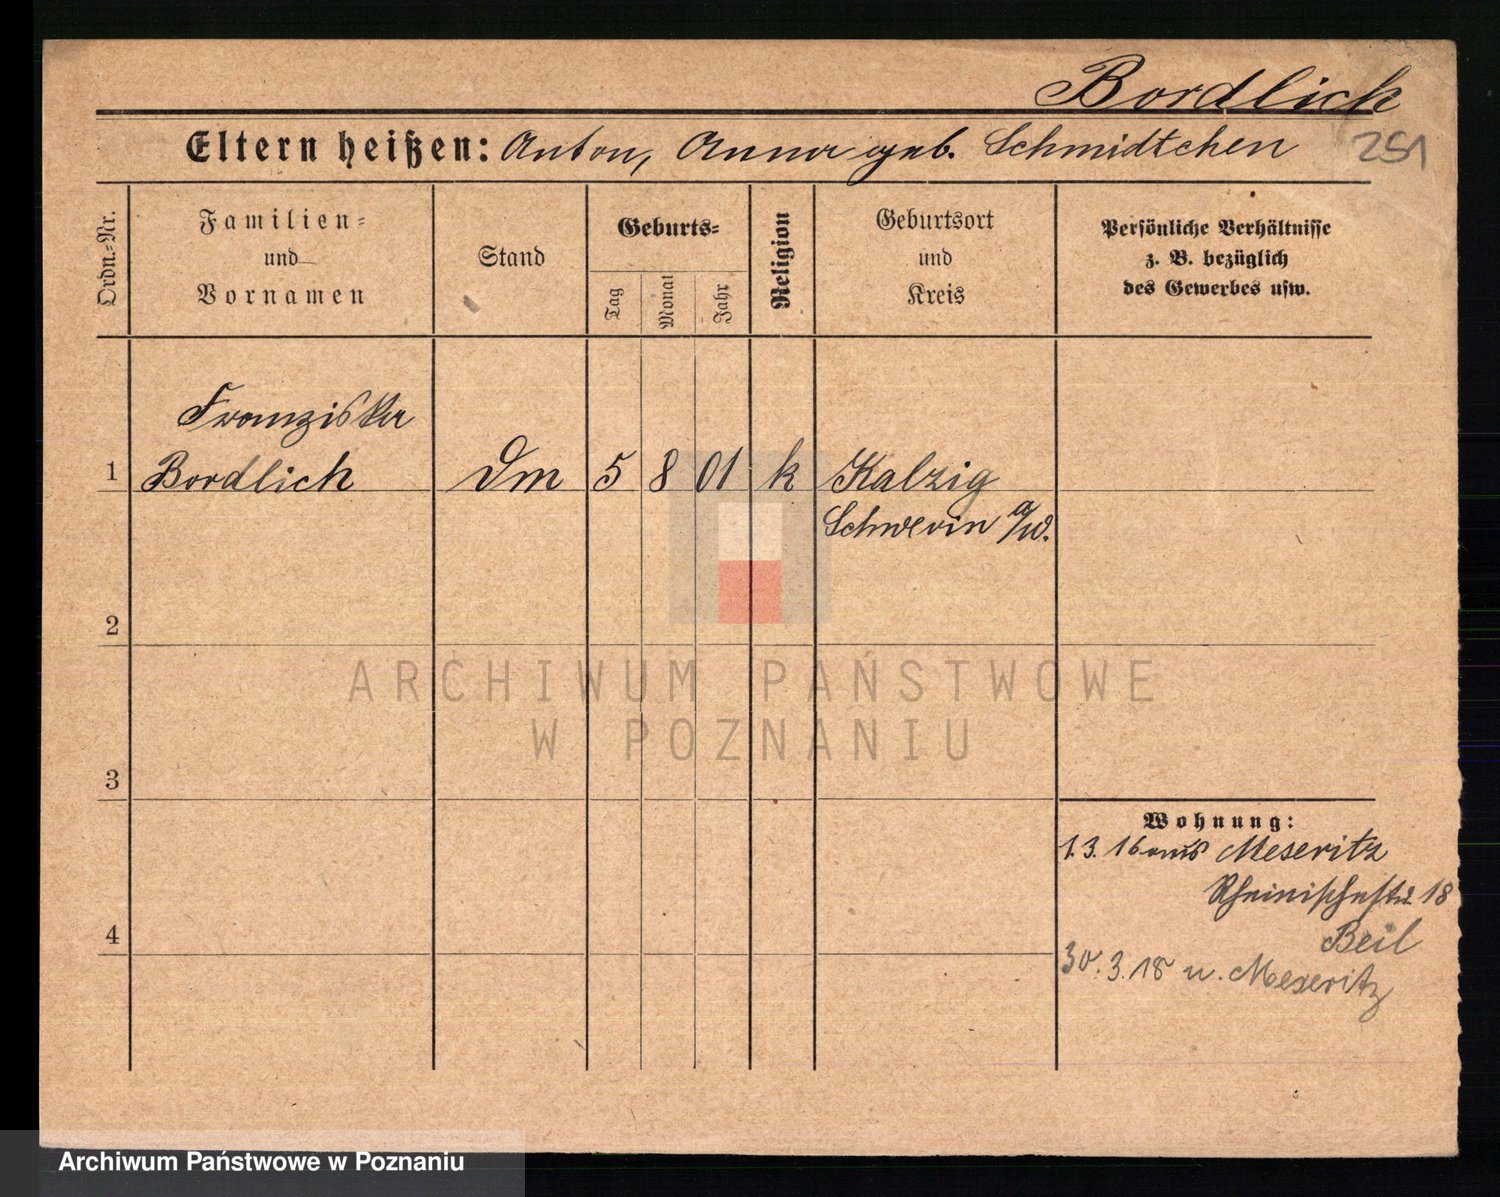 Bordlich
Eltern heißen: Anton, Anna geb. Schmidtchen
251
Ordn.-Nr.
Familien-
und
Vornamen
Stand
Geburts-
Tag
Monat
Jahr
Religion
Geburtsort
und
Kreis
Persönliche Verhältnisse
z. B. bezüglich
des Gewerbes usw.
Franziska
1 Bordlich Dm 5 8 01 k Kalzig
Schwerin a/W.
2
ARCHIWUM PAŃSTWOWE
W POZNANIU
3
Wohnung:
1.3.16 aus Meseritz
Rheinischestr. 18
Beil
4
30.3.18 n. Meseritz
Archiwum Państwowe w Poznaniu